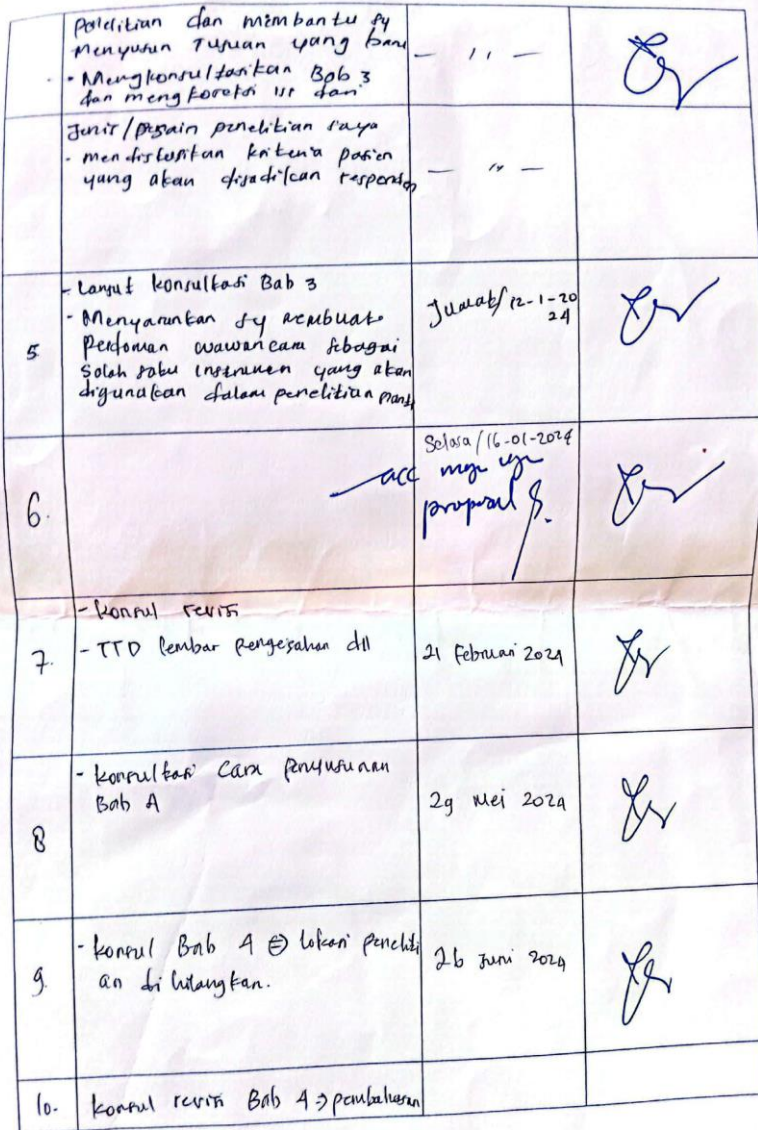 penelitian dan membantu sy
menyusun Tujuan yang baru
- Mengkonsultasikan Bab 3
dan mengkoreksi isi dari
— 11 —
Jenis/desain penelitian saya
- mendiskusikan kriteria pasien
yang akan dijadikan responden
— 11 —
5
- Lanjut konsultasi Bab 3
- Menyarankan sy membuat
Pedoman wawancara sebagai
salah satu instrumen yang akan
digunakan dalam penelitian nanti
Jumat/12-1-20
24
6.
Selasa/16-01-2024
acc maju ujian
proposal
7.
- Konsul revisi
- TTD lembar pengesahan dll
21 Februari 2024
8
- konsultasi Cara penyusunan
Bab 4
29 Mei 2024
9.
- konsul Bab 4 lokasi peneliti
an di hilangkan.
26 Juni 2024
10.
konsul revisi Bab 4 → pembahasan